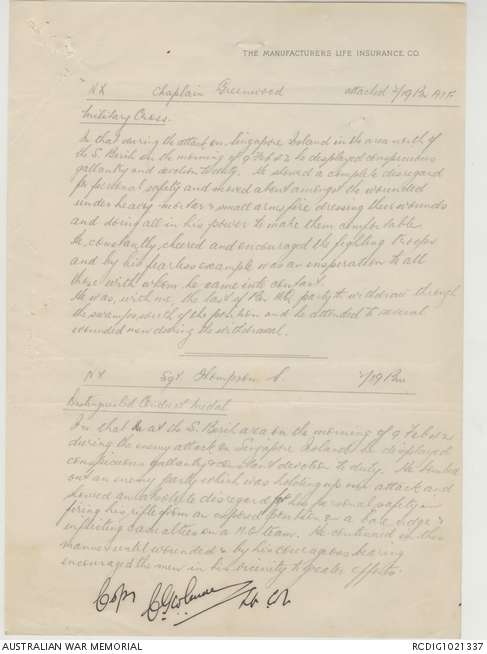 THE MANUFACTURERS LIFE INSURANCE CO.
NX Chaplain Greenwood attached 2/19 Bn AIF.
Military Cross.
In that during the attack on Singapore Island in the area north of
the S. Berih on the morning of 9 Feb 42 he displayed conspicuous
gallantry and devotion to duty. He showed a complete disregard
for personal safety and moved about amongst the wounded
under heavy mortar & small arms fire dressing their wounds
and doing all in his power to make them comfortable.
He constantly cheered and encouraged the fighting troops
and by his fearless example was an inspiration to all
those with whom he came into contact.
He was, with me, the last of Bn HQ party to withdraw through
the swamps north of the position and he attended to several
wounded men during the withdrawal.
NX Sgt Thompson C. 2/19 Bn
Distinguished Conduct Medal
In that he at the S. Berih area on the morning of 9 Feb 42
during the enemy attack on Singapore Island he displayed
conspicuous gallantry & constant devotion to duty. He
out an enemy party which was holding up our attack and
showed an absolute disregard for his personal safety in
firing his rifle from an exposed position on a
inflicting casualties on a M.G. team. He continued in this
manner until wounded & by his courageous bearing
encouraged the men in his vicinity to greater efforts.
Lt Col
AUSTRALIAN WAR MEMORIAL
RCDIG1021337